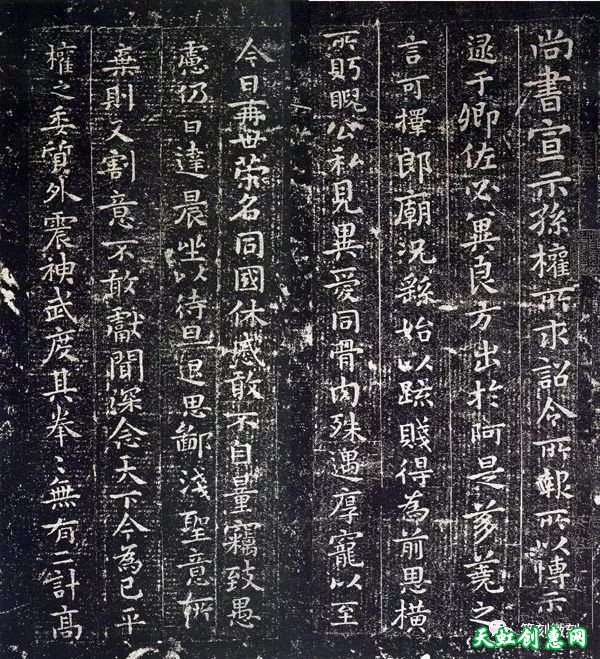 尚書宣示孫權所求詔令所報所以博示
逮于卿佐必冀良方出於阿是芻蕘之
言可擇郎廟況繇始以疏賤得為前恩橫
所眄睨公私見異愛同骨肉殊遇厚寵以至
今日再世榮名同國休慼敢不自量竊致愚
慮仍日達晨坐以待旦退思鄙淺聖意所
棄則又割意不敢獻聞深念天下今為已平
權之委質外震神武度其拳〻無有二計高
天虹创惠网